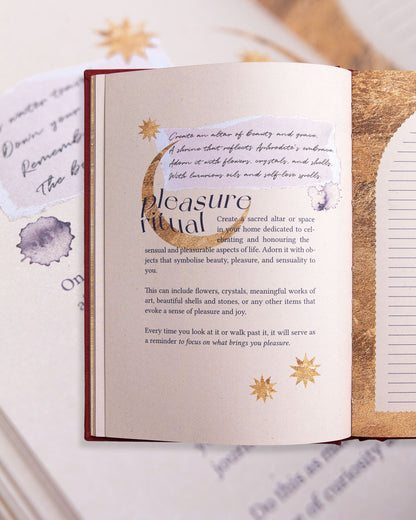 Create an altar of beauty and grace,
A shrine that reflects Aphrodite's embrace.
Adorn it with flowers, crystals, and shells,
With luxurious oils and self-love spells.
pleasure
ritual
Create a sacred altar or space
in your home dedicated to cel-
ebrating and honouring the
sensual and pleasurable aspects of life. Adorn it with ob-
jects that symbolise beauty, pleasure, and sensuality to
you.
This can include flowers, crystals, meaningful works of
art, beautiful shells and stones, or any other items that
evoke a sense of pleasure and joy.
Every time you look at it or walk past it, it will serve as
a reminder to focus on what brings you pleasure.
water
Down your
Remembe
The b
On
Do this as m
of curiosity a